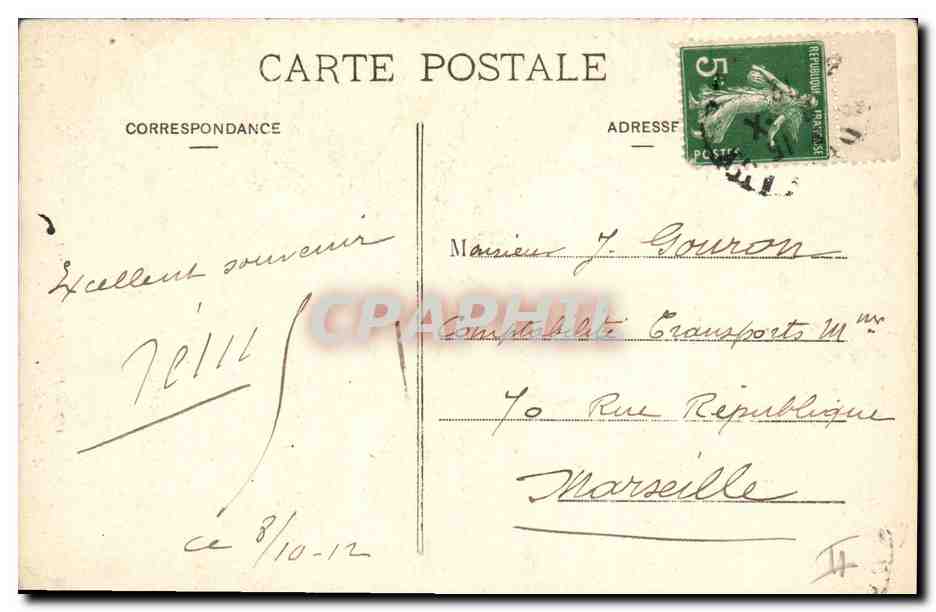 CARTE POSTALE
CORRESPONDANCE
ADRESSE
5
REPUBLIQUE FRANÇAISE
POSTES
Excellent souvenir
ce 8/10-12
Monsieur J. Gouron
Comptabilité Transports Mmes
70 Rue République
Marseille
CPAPHIL